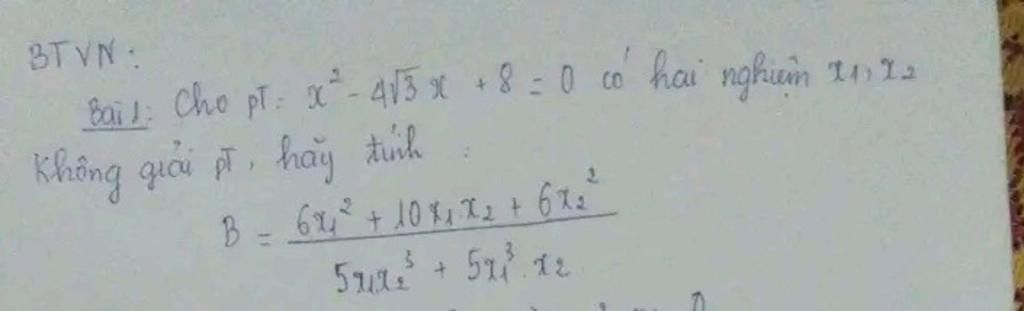 BTVN:
Bài 1: Cho pT: x² - 4√3 x + 8 = 0 có hai nghiệm x₁, x₂
Không giải pT, hãy tính:
B = (6x₁² + 10x₁.x₂ + 6x₂²) / (5x₁x₂³ + 5x₁³.x₂)